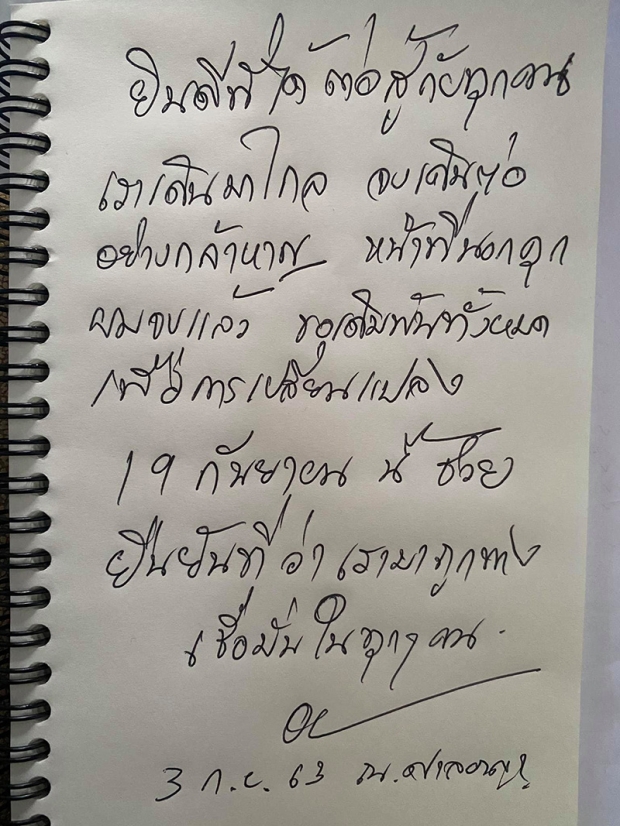 ยินดีที่ได้ต่อสู้กับทุกคน
เราเดินมาไกล จงเดินต่อ
อย่างกล้าหาญ หน้าที่นอกคุก
ผมจบแล้ว ขอเดิมพันทั้งหมด
เพื่อการเปลี่ยนแปลง
19 กันยายน นี้ ช่วย
ยืนยันที่ว่า เรามาถูกทาง
เชื่อมั่นในทุกๆ คน
3 ก.ย. 63 ณ.ศาลอาญา